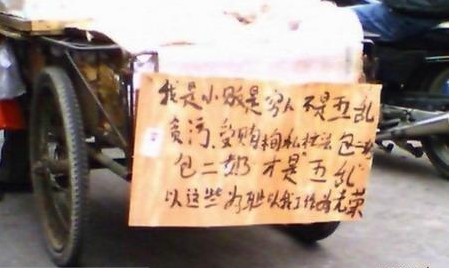 我是小贩是穷人不是五乱
贪污受贿徇私枉法包二奶
包二奶才是"五乱"
以这些为耻以我工作为光荣